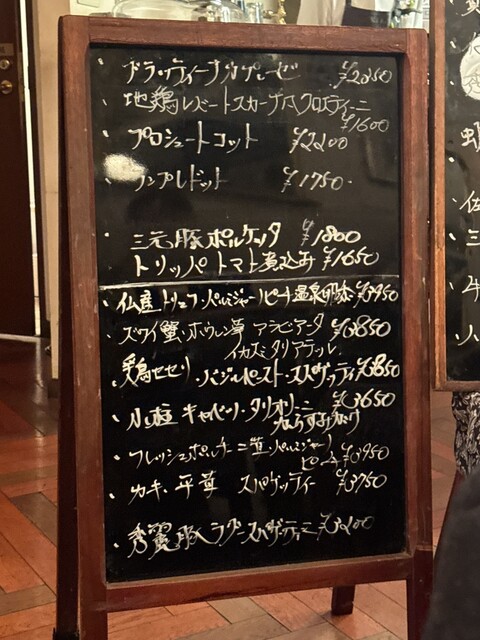 ブラッティーナカプレーゼ ¥2050
地鶏レバートスカーナ風クロスティーニ
¥1600
プロシュートコット ¥2200
ランプレドット ¥1750-
三元豚ポルケッタ ¥1800
トリッパトマト煮込み ¥1650
仏産トリュフ・パルミジャーノ ¥3950
ズワイ蟹・ホウレン草 アラビアータ ¥3850
イカスミタリアテッレ
鶏セセリ・バジルペースト・スパゲッティ ¥3850
小柱 キャベツ・タリオリーニ ¥3650
からすみがけ
フレッシュポルチーニ茸・パルミジャーノ
¥3950
カキ・平茸 スパゲッティー ¥3750
秀麗豚ラグースパゲッティーニ ¥3200
佐
三
牛